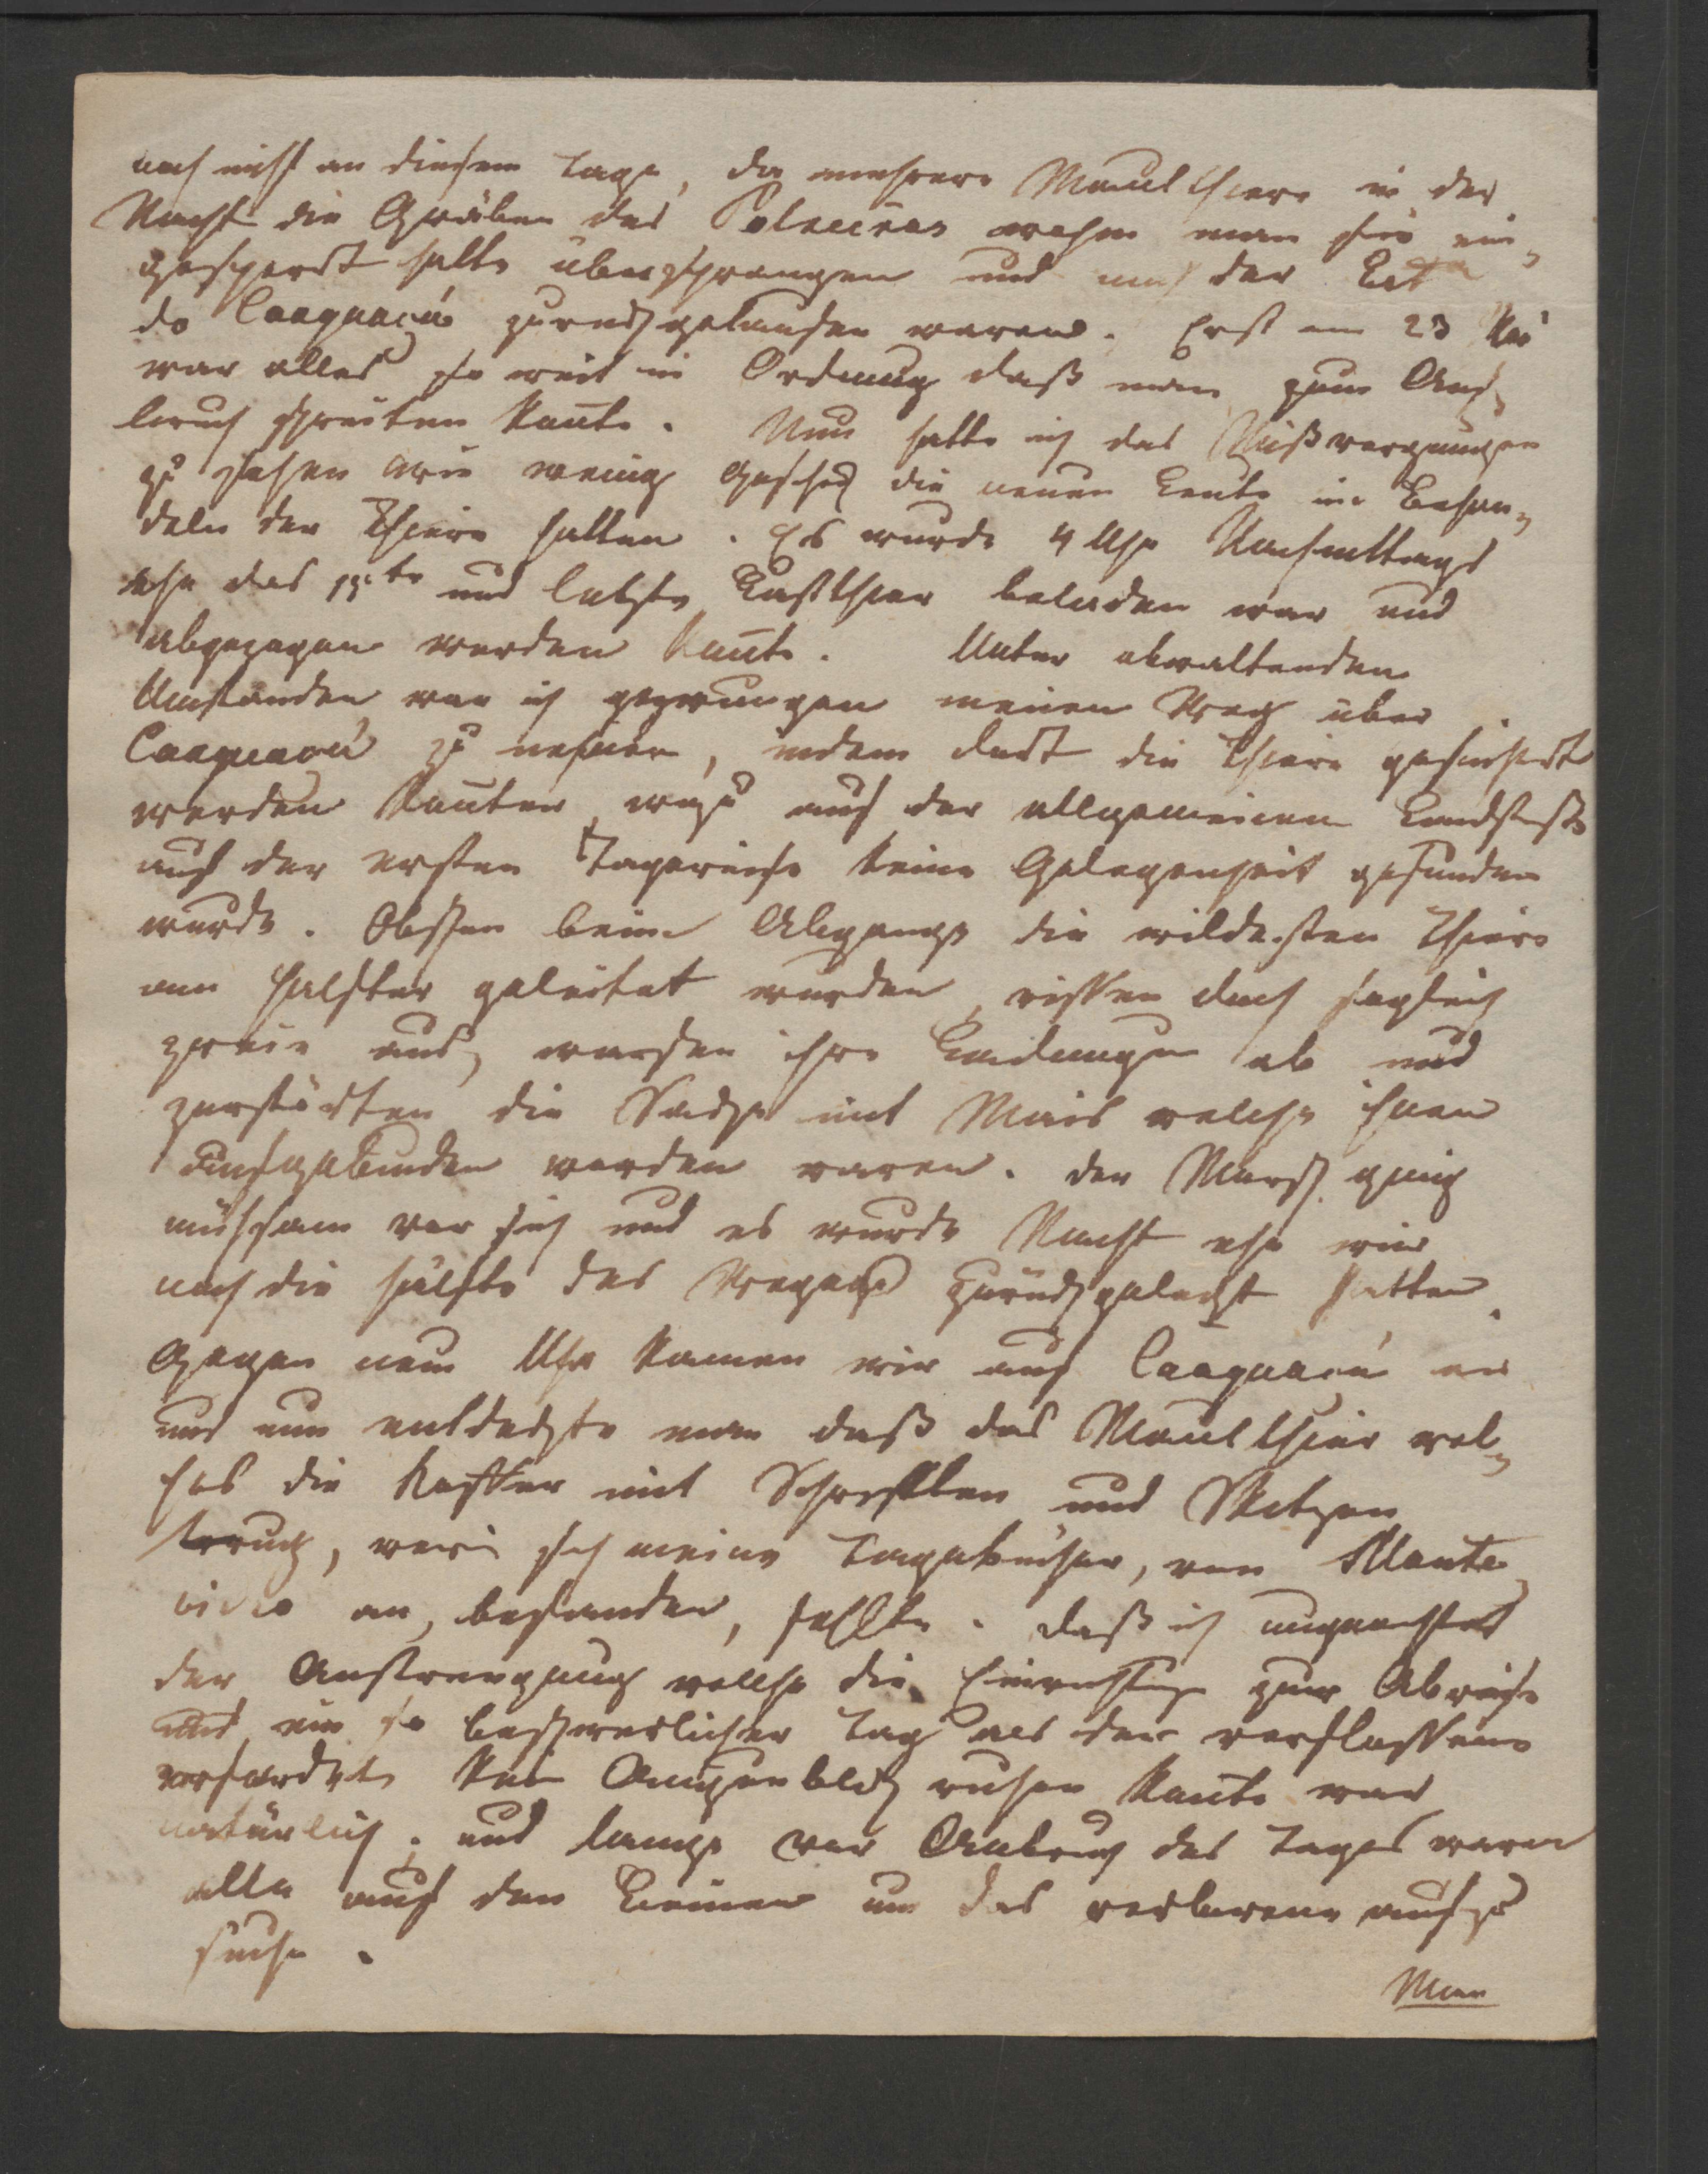 noch nicht an diesem Tage, da mehrere Maulthiere in der
Nacht die Gräben des Potreiros wohin man sie ein-
gesperrt hatte übersprangen und nach der Est.
do Caaguaçú zurückgelaufen waren. Erst am 23 Mai
war alles so weit in Ordnung daß man zum Auf-
bruch schreiten konte. Nun hatte ich das Mißvergnügen
zu sehen wie wenig Geschick die neuen Leute im Behan-
deln der Thiere hatten. Es wurde 4 Uhr Nachmittags
ehe das und letzte Lastthier beladen war und
abgezogen werden konte. Unter obwaltenden
Umständen war ich gezwungen meinen Weg über
Caaguaçú zu nehmen, indem dort die Thiere gefüttert
werden konten, wozu auf der allgemeinen Landstraße
auf der ersten Tagereise keine Gelegenheit gefunden
wurde. Obschon beim Abgange die wildesten Thiere
am Halfter geleitet wurden, rissen doch sogleich
zweie aus, warfen ihre Ladungen ab und
zerstörten die Säcke mit Mais welche ihnen
aufgebunden worden waren. Der Marsch ging
mühsam vor sich und es wurde Nacht ehe wir
noch die Hälfte des Weges zurückgelegt hatten.
Gegen neun Uhr kamen wir auf Caaguaçú an
und nun entdeckte man daß das Maulthier wel-
ches die Koffer mit Schriften und Skitzen
trug, worin sich meine Tagebücher, von Monte-
video an, befanden, fehlte. Daß ich ungeachtet
der Anstrengung welche die Einrichtung zur Abreise
und ein so beschwerlicher Tag als der verflossene
erforderte kein Augenblick ruhen konte war
natürlich; und lange vor Anbruch des Tages waren
alle auf den Beinen um das verlorene aufzu
suchen.
Man